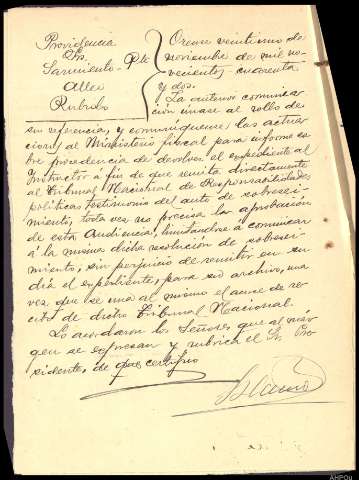 Providencia
Srs.
Sarmiento - Pte
Alleo
Rubido
Orense veintiuno de
noviembre de mil no-
vecientos cuarenta
y dos.
La anterior comunica-
ción únase al rollo de
su referencia, y comuníquense las actua-
ciones al Ministerio fiscal para informe so-
bre procedencia de devolver el expediente al
Instructor a fin de que remita directamente
al Tribunal Nacional de Responsabilidades
políticas testimonio del auto de sobresei-
miento, toda vez no precisa la aprobación
de esta Audiencia, limitándose a comunicar
a la misma dicha resolución de sobresei-
miento, sin perjuicio de remitir en su
día el expediente, para su archivo, una
vez que se una al mismo el acuse de re-
cibo de dicho Tribunal Nacional.
Lo acordaron los Señores que al mar-
gen se expresan y rubrica el Sr. Pre-
sidente, de que certifico
AHPOu